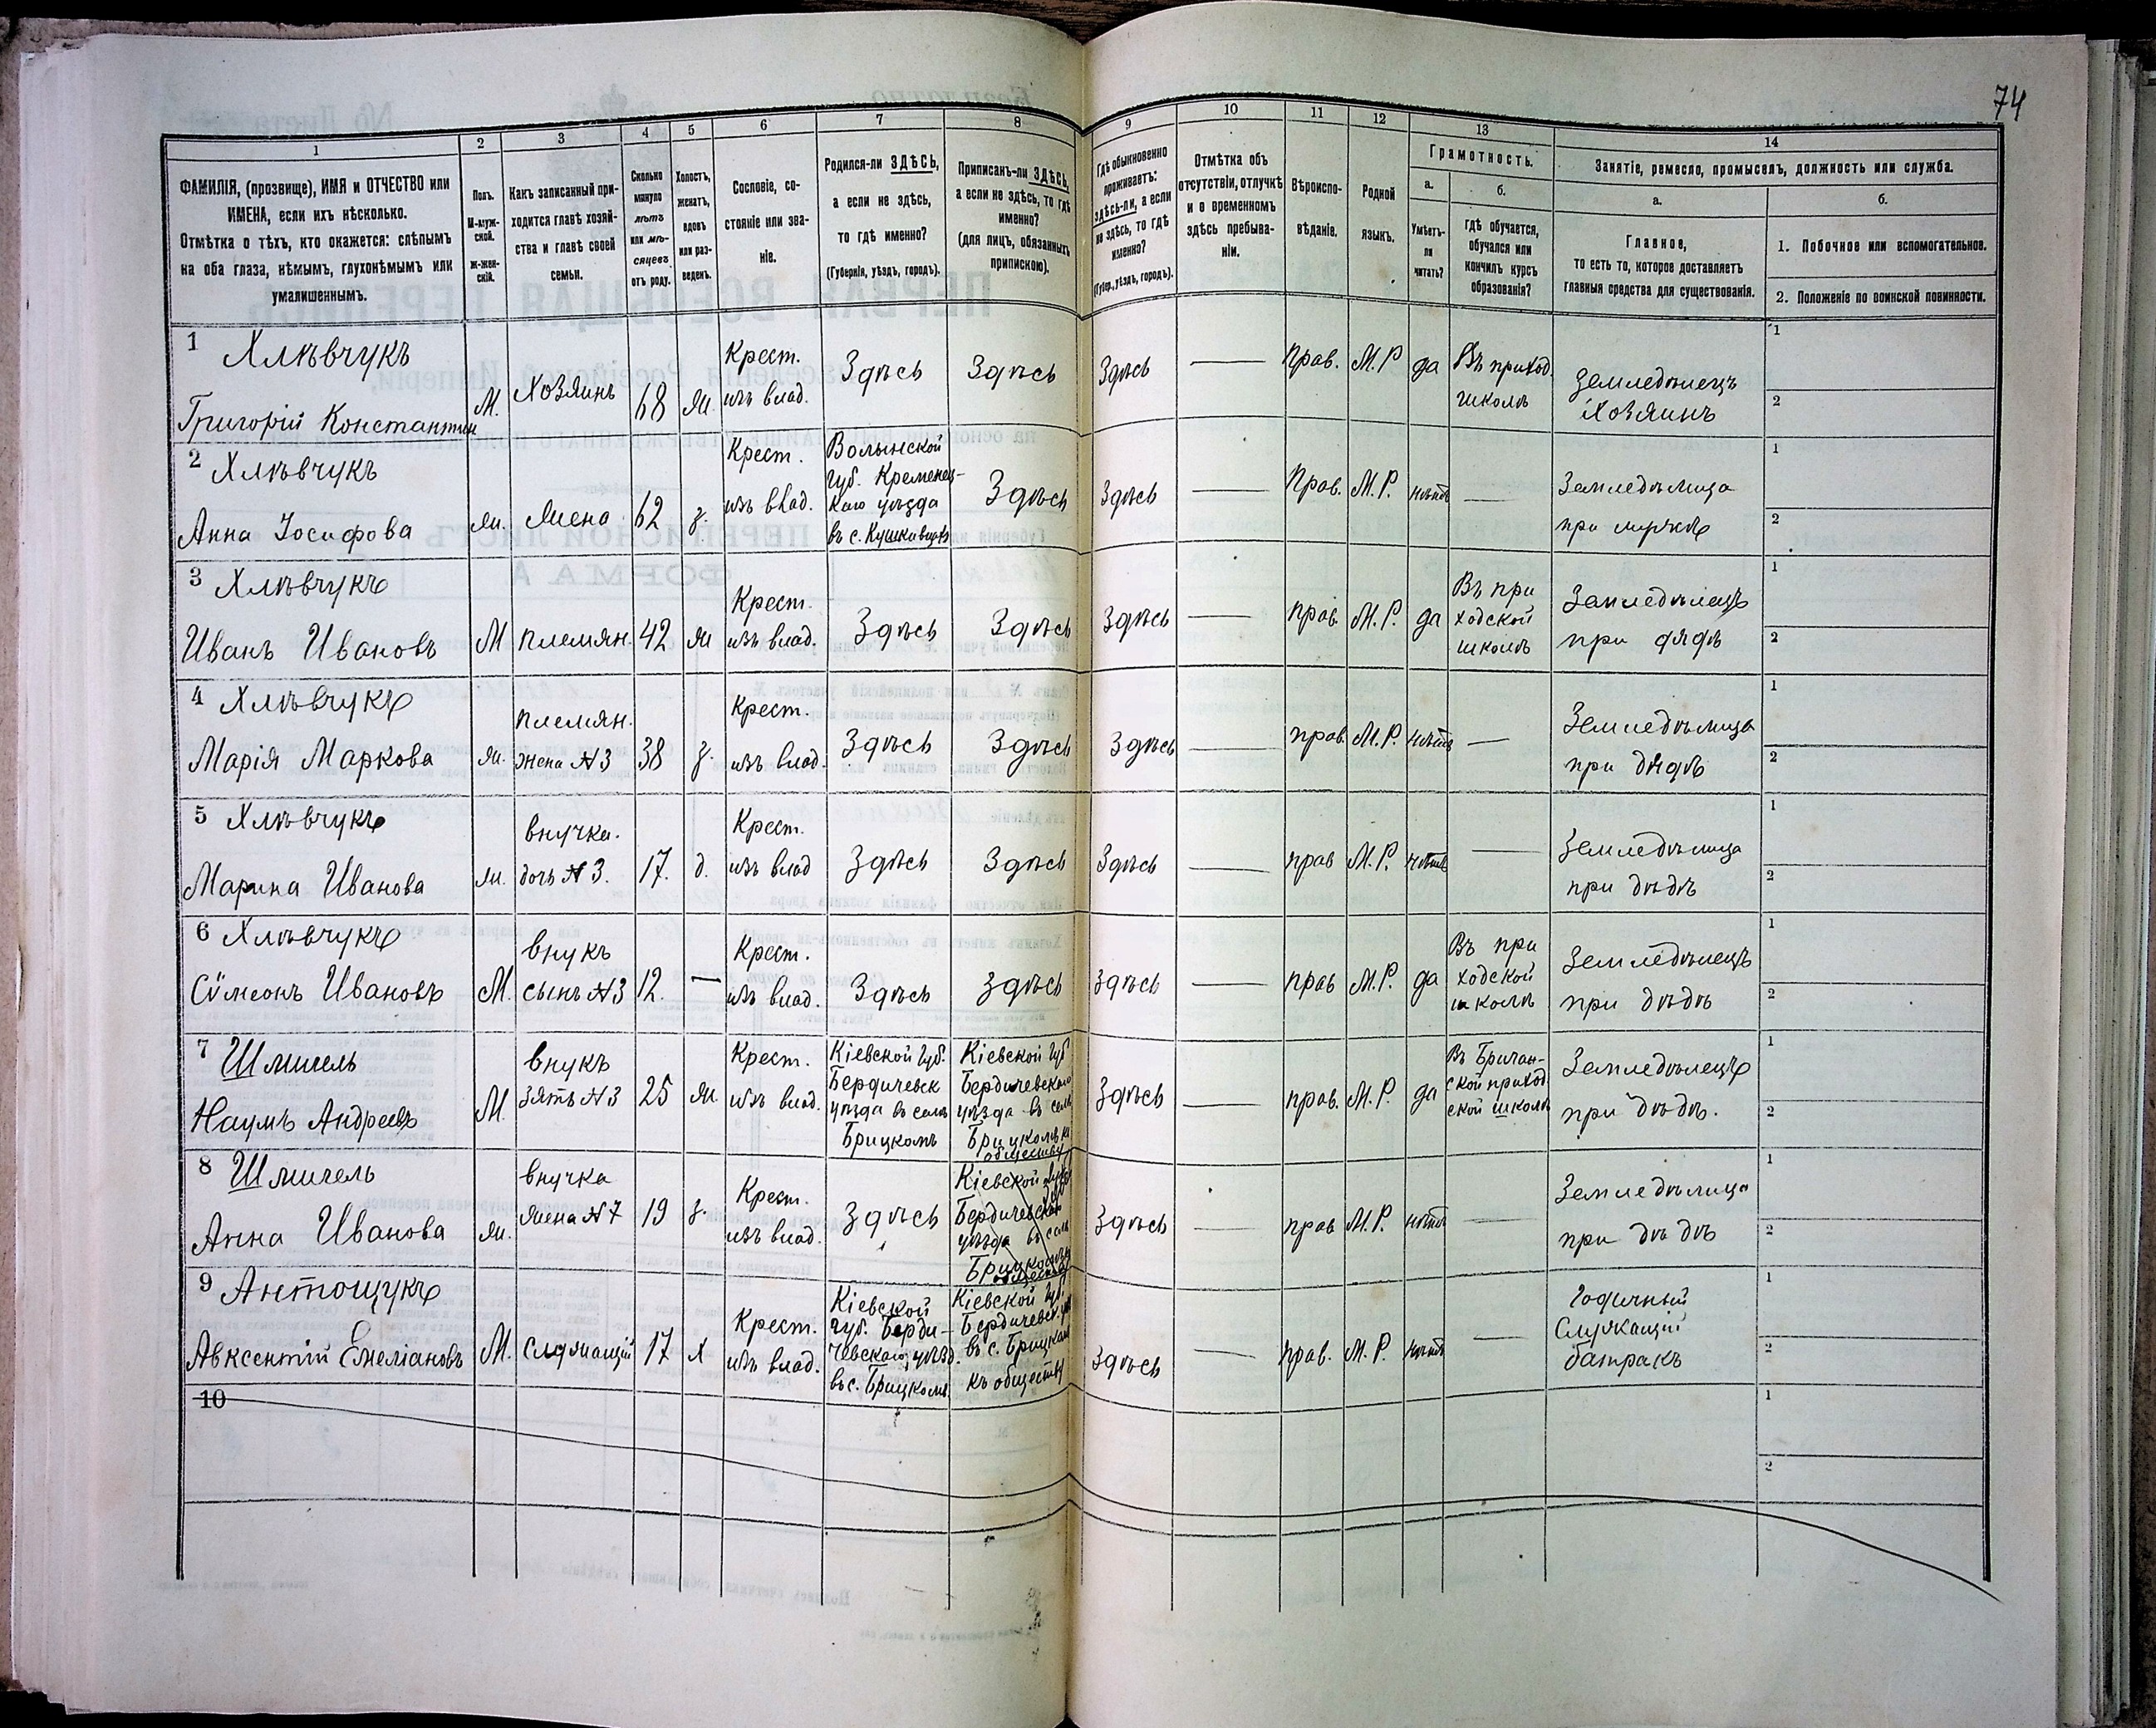 74
1
2
3
4
5
6
7
8
9
10
11
12
13
14
ФАМИЛІЯ, (прозвище), ИМЯ и ОТЧЕСТВО или
ИМЕНА, если ихъ нѣсколько.
Отмѣтка о тѣхъ, кто окажется: слѣпымъ
на оба глаза, нѣмымъ, глухонѣмымъ или
умалишеннымъ.
Полъ.
М-муж-
ской.
Ж-жен-
скій.
Какъ записанный при-
ходится главѣ хозяй-
ства и главѣ своей
семьи.
Сколько
минуло
лѣтъ
или мѣ-
сяцевъ
отъ роду.
Холостъ,
женатъ,
вдовъ
или раз-
веденъ.
Сословіе, со-
стояніе или зва-
ніе.
Родился-ли ЗДѢСЬ,
а если не здѣсь,
то гдѣ именно?
(Губернія, уѣздъ, городъ).
Приписанъ-ли ЗДѢСЬ,
а если не здѣсь, то гдѣ
именно?
(для лицъ, обязанныхъ
припискою).
Гдѣ обыкновенно
проживаетъ:
здѣсь-ли, а если
не здѣсь, то гдѣ
именно?
(Губер., уѣздъ, городъ).
Отмѣтка объ
отсутствіи, отлучкѣ
и о временномъ
здѣсь пребыва-
ніи.
Вѣроиспо-
вѣданіе.
Родной
языкъ.
Грамотность.
а.
Умѣетъ-
ли
читать?
б.
гдѣ обучается,
обучался или
кончилъ курсъ
образованія?
Занятіе, ремесло, промыселъ, должность или служба.
а.
Главное,
то есть то, которое доставляетъ
главныя средства для существованія.
б.
1. Побочное или вспомогательное.
2. Положеніе по воинской повинности.
1 Хлѣвчукъ
Григорій Константин
М.
Хозяинъ
68
ж.
Крест.
изъ влад.
Здѣсь
Здѣсь
Здѣсь
—
Прав.
М.Р
да
Въ приход.
школѣ
Земледѣлецъ
Хозяинъ
1
2
2 Хлѣвчукъ
Анна Іосифова
ж.
жена
62
з.
Крест.
изъ влад.
Волынской
губ. Кременец-
каго уѣзда
въ с.
Здѣсь
Здѣсь
—
Прав.
М.Р.
нѣтъ
—
Земледѣлица
при мужѣ
1
2
3 Хлѣвчукъ
Иванъ Ивановъ
М
племян.
42
ж
Крест.
изъ влад.
Здѣсь
Здѣсь
Здѣсь
—
прав.
М.Р.
да
Въ при
ходской
школѣ
Земледѣлецъ
при дядѣ
1
2
4 Хлѣвчукъ
Марія Маркова
ж.
племян.
жена №3
38
з.
Крест.
изъ влад.
Здѣсь
Здѣсь
Здѣсь
—
прав.
М.Р.
нѣтъ
—
Земледѣлица
при дядѣ
1
2
5 Хлѣвчукъ
Марина Иванова
ж.
внучка.
дочь №3.
17.
д.
Крест.
изъ влад
Здѣсь
Здѣсь
Здѣсь
—
прав
М.Р.
нѣтъ
—
Земледѣлица
при дѣдѣ
1
2
6 Хлѣвчукъ
Сѵмеонъ Ивановъ
М.
внукъ
сынъ №3
12.
—
Крест.
изъ влад.
Здѣсь
Здѣсь
Здѣсь
—
прав
М.Р.
да
Въ при
ходской
школѣ
Земледѣлецъ
при дѣдѣ
1
2
7 Шмигель
Наумъ Андреевъ
М.
внукъ
зять №3
25
ж.
Крест.
изъ влад.
Кіевской Губ.
Бердичевск
уѣзда въ селѣ
Брицкомъ
Кіевской Губ
Бердичевскаго
уѣзда въ селѣ
Брицкомъ къ
обществу
Здѣсь
—
прав.
М.Р.
да
ской приход
ской школѣ
Земледѣлецъ
при дѣдѣ.
1
2
8 Шмигель
Анна Иванова
ж.
внучка
жена №7
19
з.
Крест.
изъ влад.
Здѣсь
Кіевской
Бердичевскаго
уѣзда въ селѣ
Брицкомъ
обществу
Здѣсь
—
прав
М.Р.
нѣтъ
—
Земледѣлица
при дѣдѣ
1
2
9 Антощукъ
Авксентій Емеліановъ
М.
Служащій
17
х
Крест.
изъ влад.
Кіевской
губ. Берди-
чевскаго уѣзд.
въ с. Брицкомъ
Кіевской Губ.
Бердичевск. у
въ с. Брицкомъ
къ обществу
Здѣсь
—
прав.
М.Р.
нѣтъ
—
Годичный
Служащій
батракъ
1
2
10
1
2